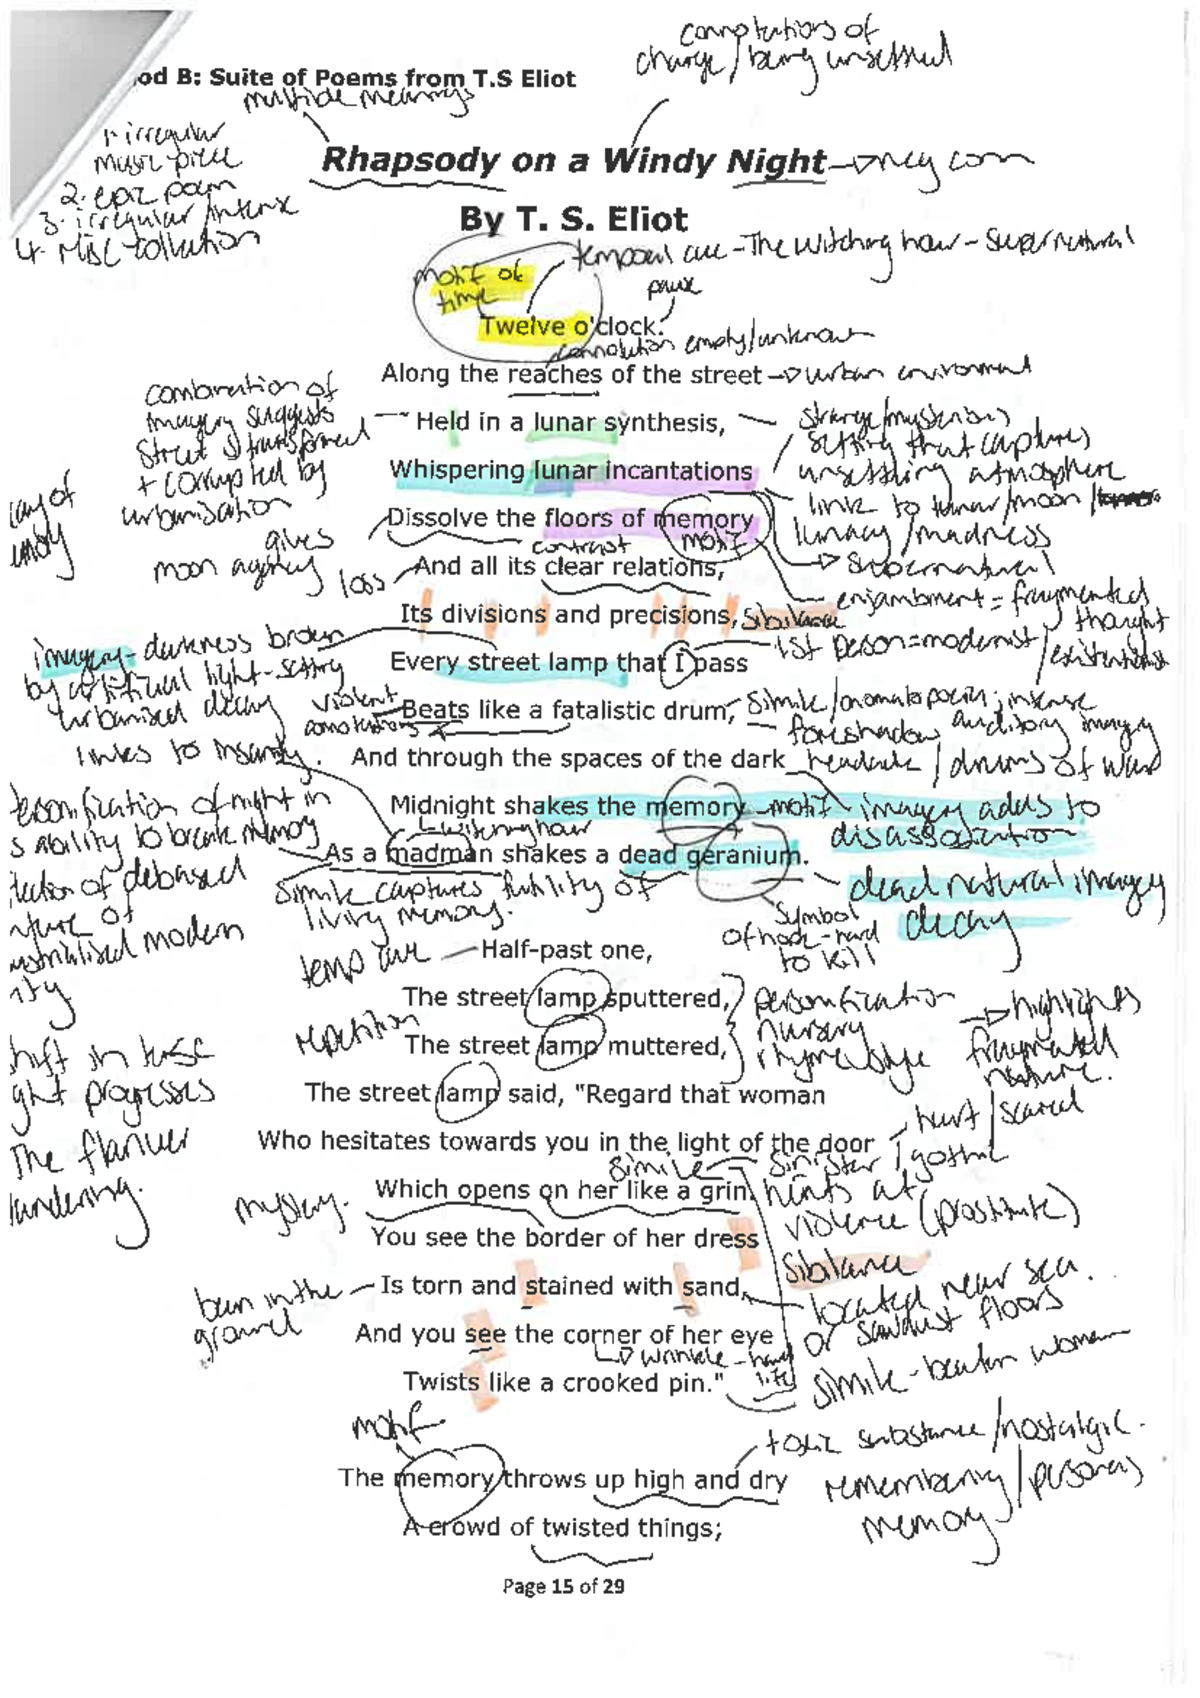 connotations of
change / being unsettled
od B: Suite of Poems from T.S Eliot
multiple meanings
1. irregular
music piece
2. epic poem
3. irregular / intense
4. Misc collation
Rhapsody on a Windy Night → neg conn
By T. S. Eliot
motif of
time
temporal cue - The witching hour - Supernatural
pause
Twelve o'clock.
connotation empty/unknown
Along the reaches of the street → urban environment
combination of
imagery suggests
street is transformed
+ corrupted by
urbanisation
Held in a lunar synthesis,
strange/mysterious
setting that captures
unsettling atmosphere
Whispering lunar incantations
link to lunar/moon /
lunacy / madness
→ Supernatural
Dissolve the floors of memory
motif
gives
moon agency
loss
contrast
And all its clear relations,
enjambment = fragmented
thought
Its divisions and precisions, sibilance
1st person = modernist / existentialist
imagery - darkness broken
by artificial light - setting
urbanised decay
links to insanity.
Every street lamp that I pass
violent
connotations
Beats like a fatalistic drum,
simile / onomatopoeia; intense
foreshadow auditory imagery
And through the spaces of the dark
headache / drums of war
Midnight shakes the memory - motif
imagery adds to
disassociation
witching hour
As a madman shakes a dead geranium.
dead natural imagery
decay
simile captures futility of
living memory.
Symbol
of hope - hard
to kill
temp cue
Half-past one,
The street lamp sputtered,
personification
nursery
rhyme
→ highlights
fragmented
nature.
repetition
The street lamp muttered,
The street lamp said, "Regard that woman
Who hesitates towards you in the light of the door
hurt / scared
simile
sinister / gothic
hints at
violence (prostitute)
mystery.
Which opens on her like a grin.
You see the border of her dress
sibilance
been in the
ground
Is torn and stained with sand,
located near sea.
or sawdust floors
And you see the corner of her eye
→ wrinkle - hard
life
simile - beaten woman
Twists like a crooked pin."
motif
toxic substance / nostalgic.
remembering / persona's
memory
The memory throws up high and dry
A crowd of twisted things;
Page 15 of 29